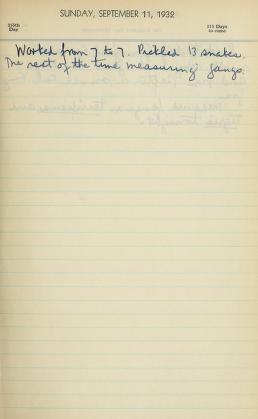 SUNDAY, SEPTEMBER 11, 1932
255th Day
111 Days to come
Worked from 7 to 7. Pickled 13 snakes.
The rest of the time measuring fangs.